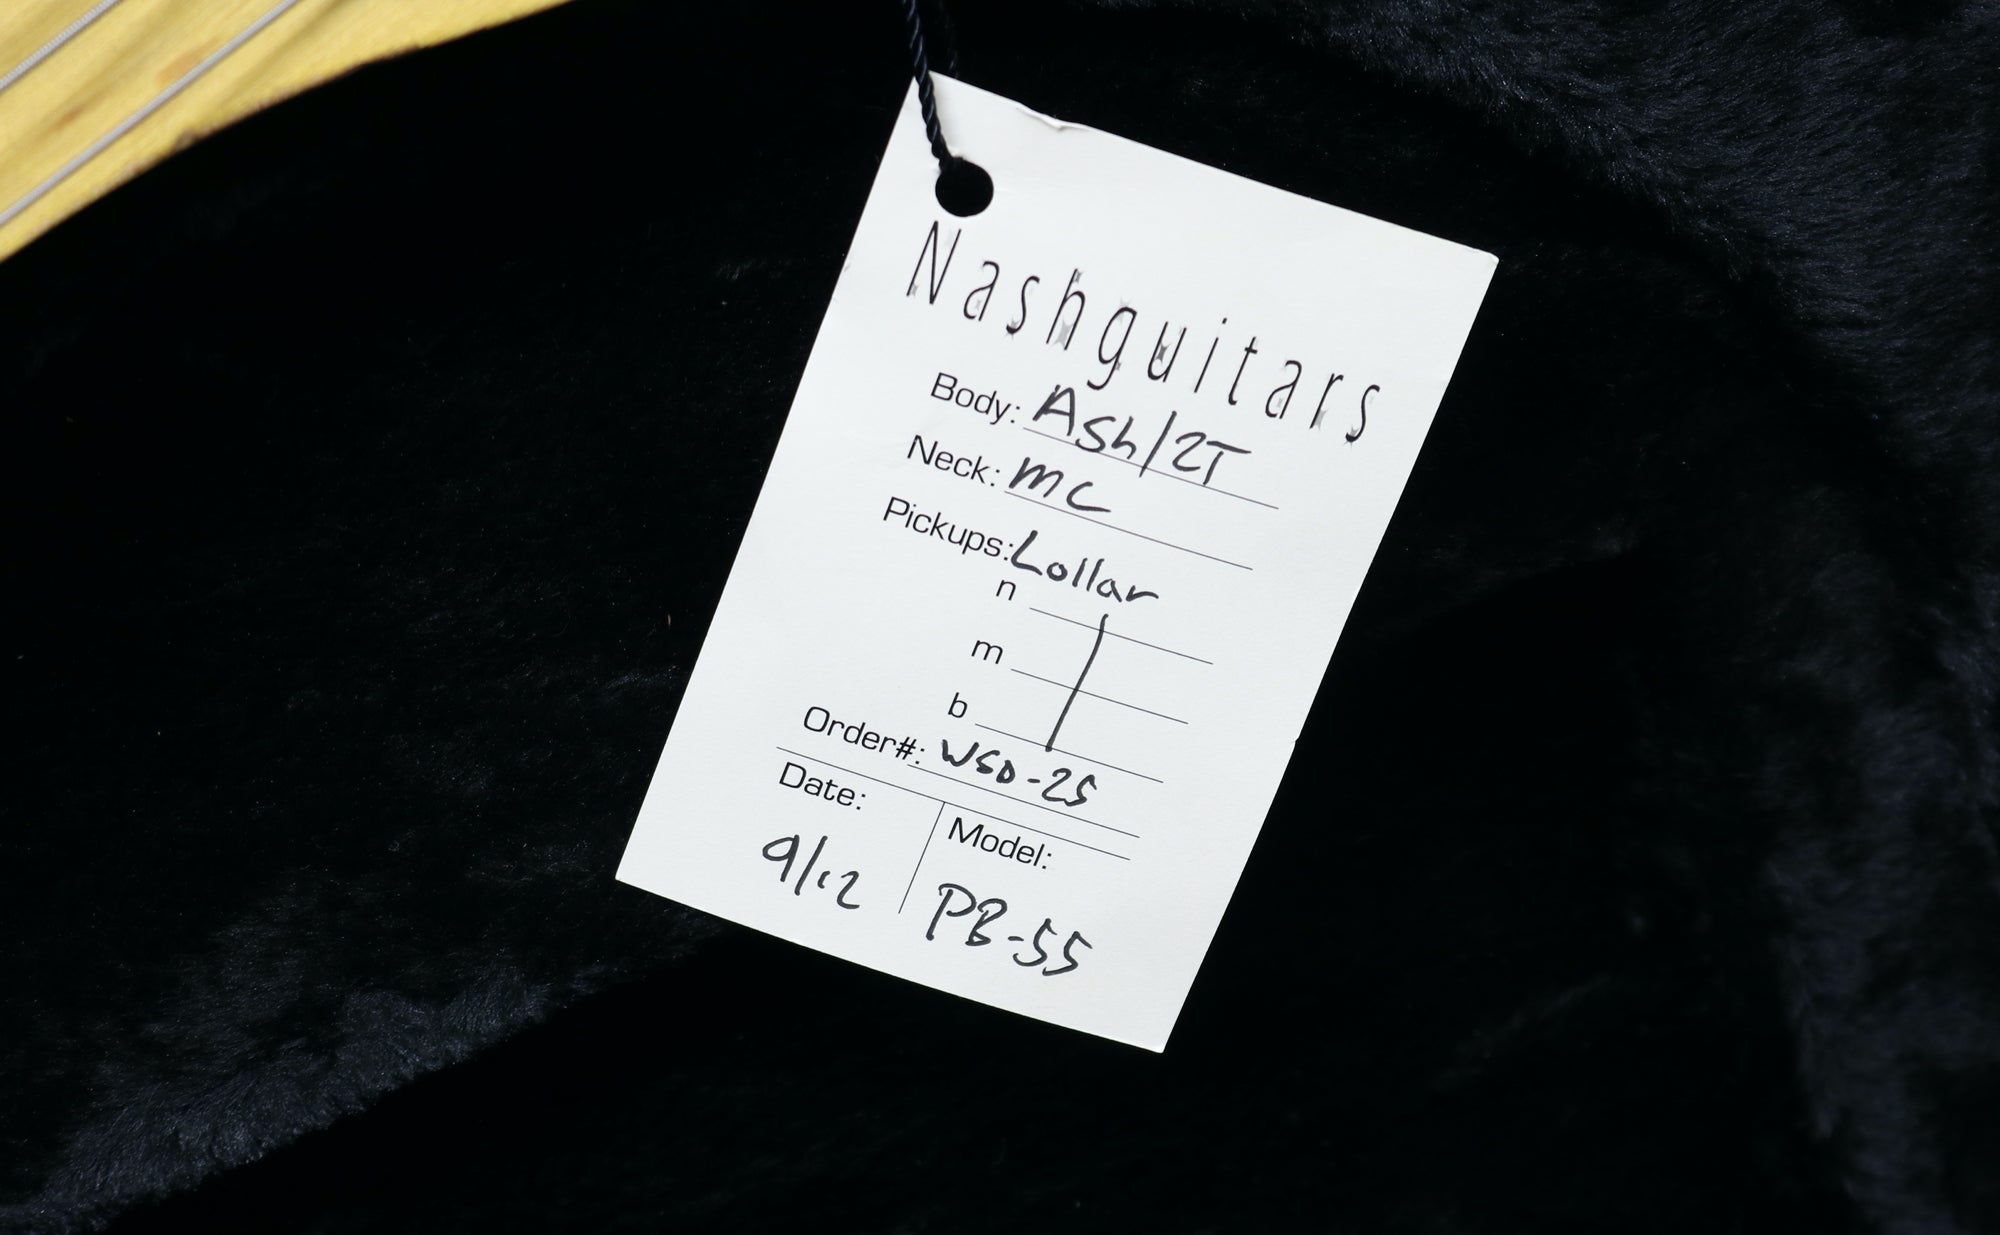 Nashguitars
Body: Ash/2T
Neck: mc
Pickups: Lollar
n
m
b
Order#: WSD-25
Date:
9/12
Model:
PB-55